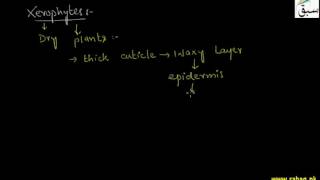 Xerophytes :-
Dry plants :-
→ thick cuticle → Waxy Layer
epidermis
سبق
www.sabaq.pk